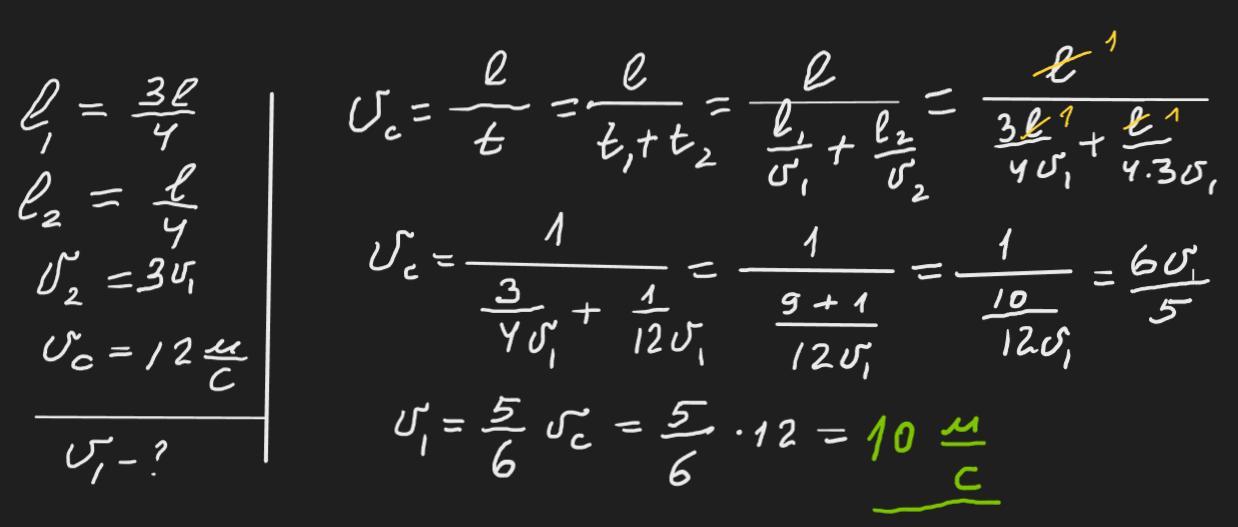 l₁ = 3l/4
l₂ = l/4
υ₂ = 3υ₁
υc = 12 м/с
υ₁ - ?
υc = l/t = l/(t₁ + t₂) = l/(l₁/υ₁ + l₂/υ₂) = l 1/(3l 1/4υ₁ + l 1/4·3υ₁)
υc = 1/(3/4υ₁ + 1/12υ₁) = 1/((9 + 1)/12υ₁) = 1/(10/12υ₁) = 6υ₁/5
υ₁ = 5/6 υc = 5/6 · 12 = 10 м/с